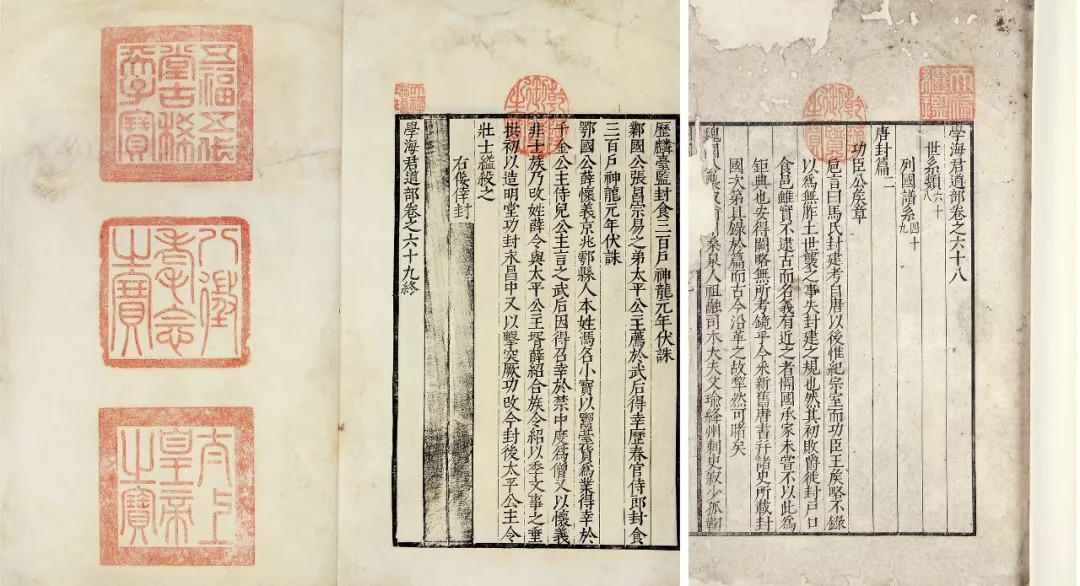 天祿繼鑑
乾隆御覽之寶
學海君道部卷之六十八
世系類六十八
列國譜系四十九
唐封篇二
功臣公侯章
卮言曰馬氏封建考自唐以後惟紀宗室而功臣王侯略不錄
以爲無胙土世襲之事失封建之規也然其初敗爵徙封戸口
食邑雖實不逮古而名義有近之者開國承家未嘗不以此爲
鉅典也安得闕略無所考鏡乎今采新舊唐書幷諸史所載封
國次第且錄於篇而古今沿革之故犂然可睹矣
魏國公裴寂 桑泉人祖融司木大夫父瑜絳州刺史寂少孤
乾隆御覽之寶
歷麟臺監封食三百戸神龍元年伏誅
鄴國公張昌宗易之弟太平公主薦於武后得幸歷春官侍郎封食
三百戸神龍元年伏誅
鄂國公薛懷義京兆鄠縣人本姓馮名小寶以鬻臺貨爲業得幸於
千金公主侍兒公主言之武后因得召幸於禁中度爲僧又以懷義
非士族乃改姓薛令與太平公主壻薛紹合族令紹以季父事之垂
拱初以造明堂功封永昌中又以擊突厥功改今封後太平公主令
壯士縊殺之
右倿幸封
學海君道部卷之六十九終
五福五代堂古稀天子寶
八徵耄念之寶
太上皇帝之寶